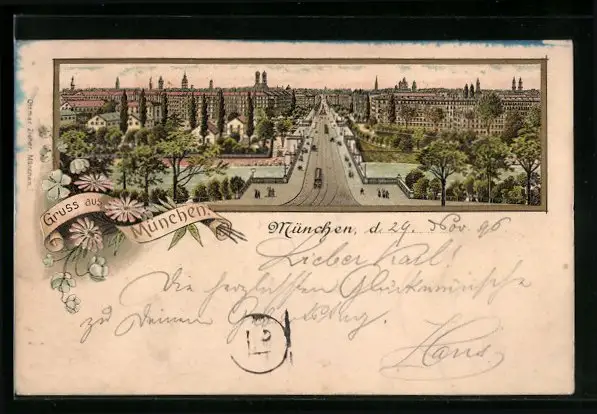 Ottmar Zieher, München.
Gruss aus
München.
München, d. 29. Nov. 96
Lieber Karl!
Die herzlichsten Glückwünsche
zu Deinem Geburtstag.
Hans